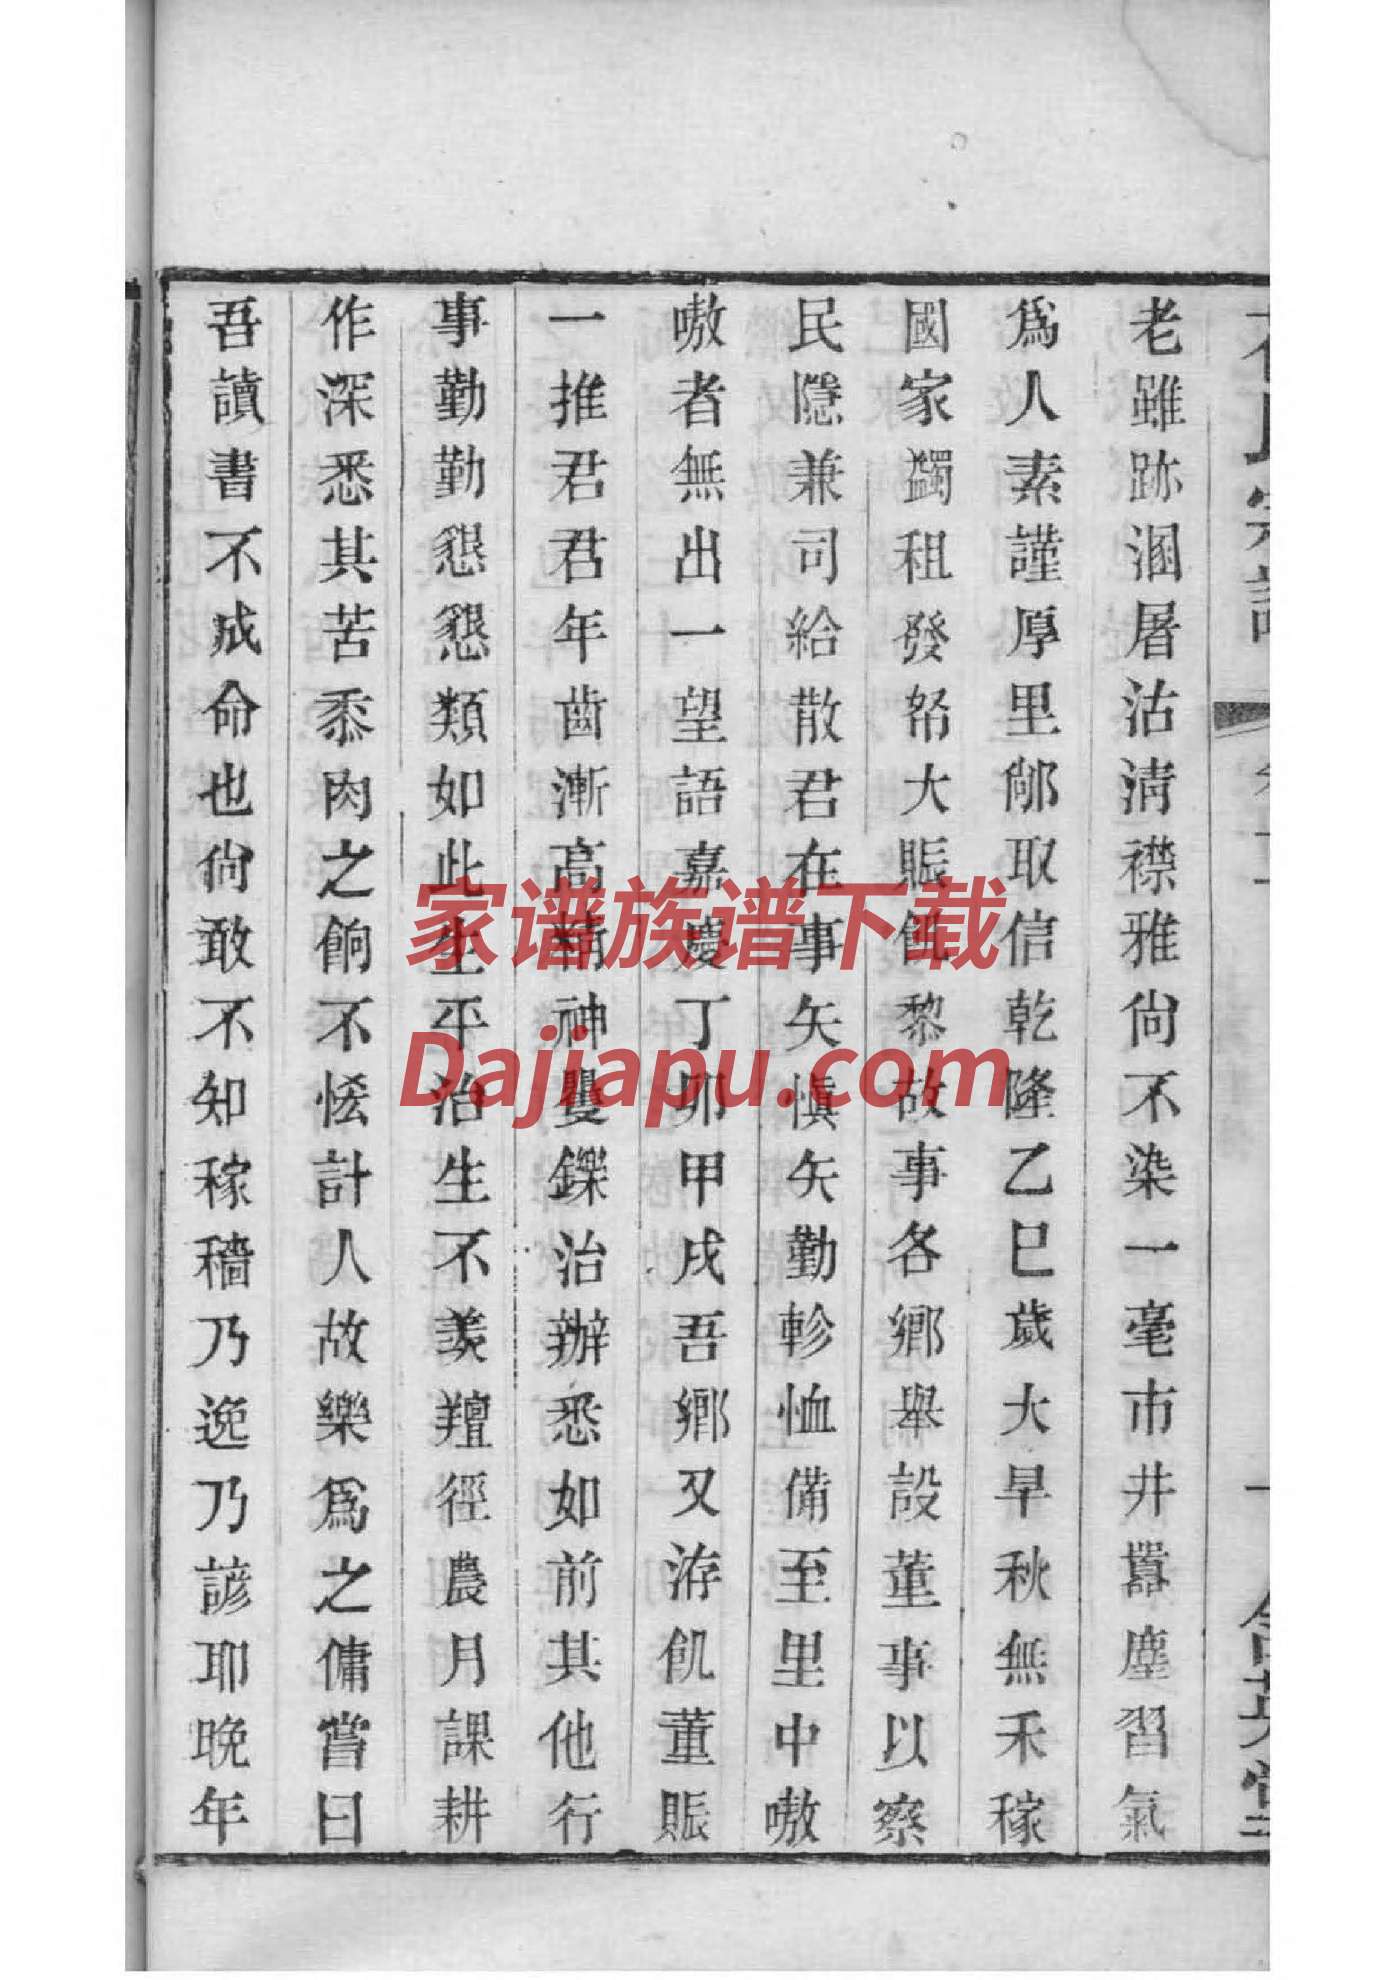 老雖跡溷屠沽淸襟雅尙不染一毫市井囂塵習氣
爲人素謹厚里鄰取信乾隆乙巳歲大旱秋無禾稼
國家蠲租發帑大賑飢黎故事各鄉舉設董事以察
民隱兼司給散君在事矢愼矢勤軫恤備至里中嗷
嗷者無出一望語嘉慶丁卯甲戌吾鄉又洊飢董賑
一推君君年齒漸高精神矍鑠治辦悉如前其他行
事勤勤懇懇類如此生平治生不羨羶徑農月課耕
作深悉其苦黍肉之餉不恡計人故樂爲之傭嘗曰
吾讀書不成命也尙敢不知稼穡乃逸乃諺耶晚年
家谱族谱下载
Dajiapu.com